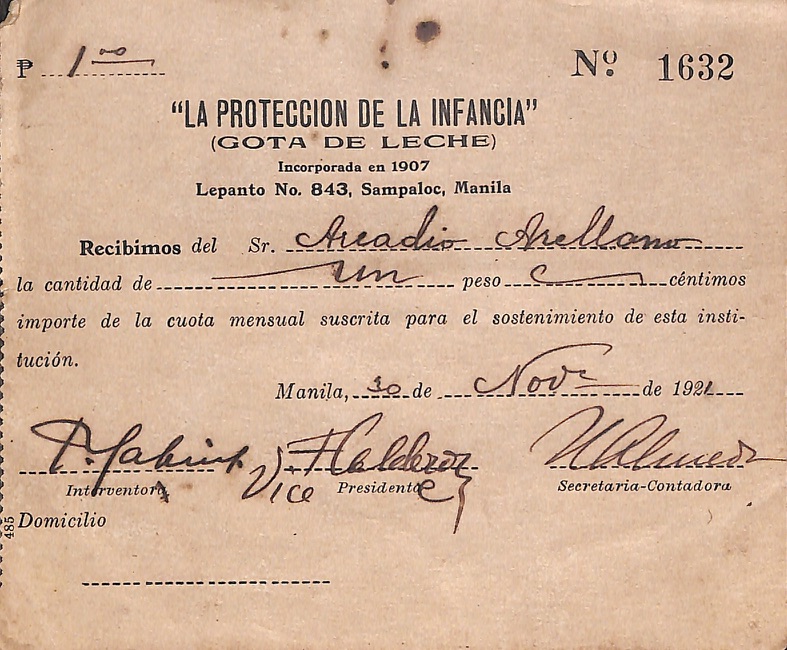 ₱ 1 00
Nº. 1632
"LA PROTECCION DE LA INFANCIA"
(GOTA DE LECHE)
Incorporada en 1907
Lepanto No. 843, Sampaloc, Manila
Recibimos del Sr. Arcadio Arellano
la cantidad de un peso céntimos
importe de la cuota mensual suscrita para el sostenimiento de esta insti-
tución.
Manila, 30 de Novr de 1921
Interventora Vice Presidente Secretaria-Contadora
485
Domicilio